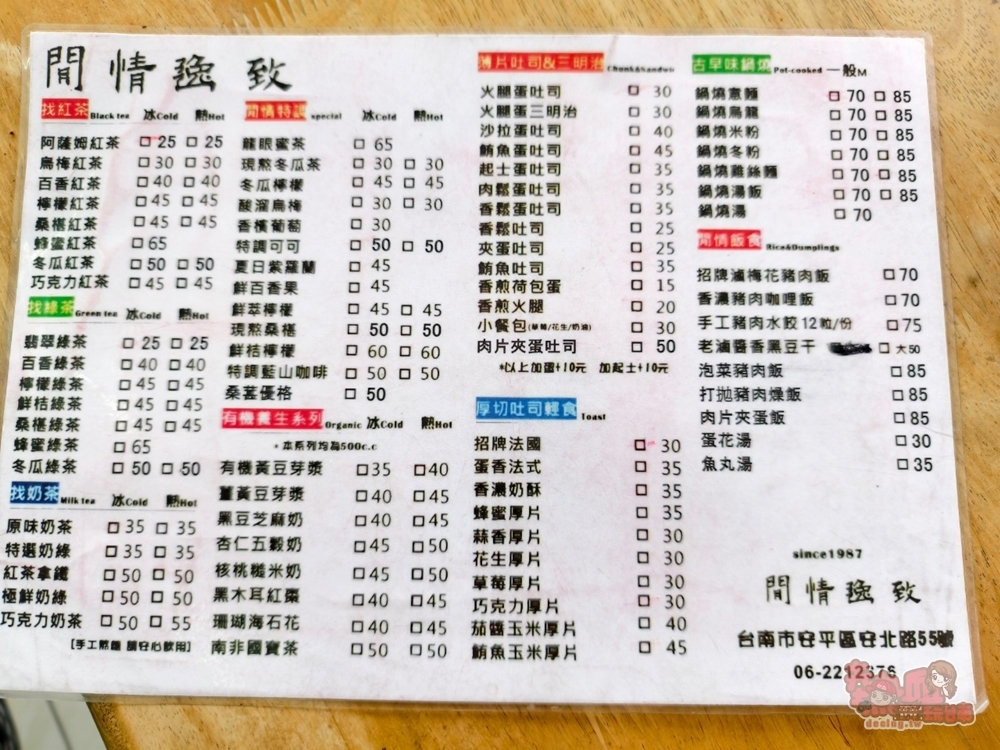 閒情逸致
找紅茶 Black tea 冰Cold 熱Hot
阿薩姆紅茶 □25 □25
烏梅紅茶 □30 □30
百香紅茶 □40 □40
檸檬紅茶 □45 □45
桑椹紅茶 □45 □45
蜂蜜紅茶 □65
冬瓜紅茶 □50 □50
巧克力紅茶 □45 □45
找綠茶 Green tea 冰Cold 熱Hot
翡翠綠茶 □25 □25
百香綠茶 □40 □40
檸檬綠茶 □45 □45
鮮桔綠茶 □45 □45
桑椹綠茶 □45 □45
蜂蜜綠茶 □65
冬瓜綠茶 □50 □50
找奶茶 Milk tea 冰Cold 熱Hot
原味奶茶 □35 □35
特選奶綠 □35 □35
紅茶拿鐵 □50 □50
極鮮奶綠 □50 □50
巧克力奶茶 □50 □55
[手工熬糖 請安心飲用]
閒情特調 special 冰Cold 熱Hot
龍眼蜜茶 □65
現熬冬瓜茶 □30 □30
冬瓜檸檬 □45 □45
酸溜烏梅 □30 □30
香檳葡萄 □30
特調可可 □50 □50
夏日紫羅蘭 □45
鮮百香果 □45
鮮萃檸檬 □45 □45
現熬桑椹 □50 □50
鮮桔檸檬 □60 □60
特調藍山咖啡 □50 □50
桑葚優格 □50
有機養生系列 Organic 冰Cold 熱Hot
*本系列均為500c.c
有機黃豆芽漿 □35 □40
薑黃豆芽漿 □40 □45
黑豆芝麻奶 □40 □45
杏仁五穀奶 □45 □50
核桃糙米奶 □45 □50
黑木耳紅棗 □40 □45
珊瑚海石花 □40 □45
南非國寶茶 □50 □50
薄片吐司&三明治 Chunk&Sandwi
火腿蛋吐司 □30
火腿蛋三明治 □30
沙拉蛋吐司 □40
鮪魚蛋吐司 □45
起士蛋吐司 □35
肉鬆蛋吐司 □35
香鬆蛋吐司 □35
香鬆吐司 □25
夾蛋吐司 □25
鮪魚吐司 □35
香煎荷包蛋 □15
香煎火腿 □20
小餐包(草莓/花生/奶油) □30
肉片夾蛋吐司 □50
*以上加蛋+10元 加起士+10元
厚切吐司輕食 Toast
招牌法國 □30
蛋香法式 □35
香濃奶酥 □35
蜂蜜厚片 □30
蒜香厚片 □30
花生厚片 □30
草莓厚片 □30
巧克力厚片 □30
茄醬玉米厚片 □40
鮪魚玉米厚片 □45
古早味鍋燒 Pot-cooked 一般M
鍋燒意麵 □70 □85
鍋燒烏龍 □70 □85
鍋燒米粉 □70 □85
鍋燒冬粉 □70 □85
鍋燒雞絲麵 □70 □85
鍋燒湯飯 □70 □85
鍋燒湯 □70
閒情飯食 Rice&Dumplings
招牌滷梅花豬肉飯 □70
香濃豬肉咖哩飯 □70
手工豬肉水餃12粒/份 □75
老滷醬香黑豆干 □大50
泡菜豬肉飯 □85
打拋豬肉燥飯 □85
肉片夾蛋飯 □85
蛋花湯 □30
魚丸湯 □35
since1987
閒情逸致
台南市安平區安北路55號
06-2212376
decing.tw